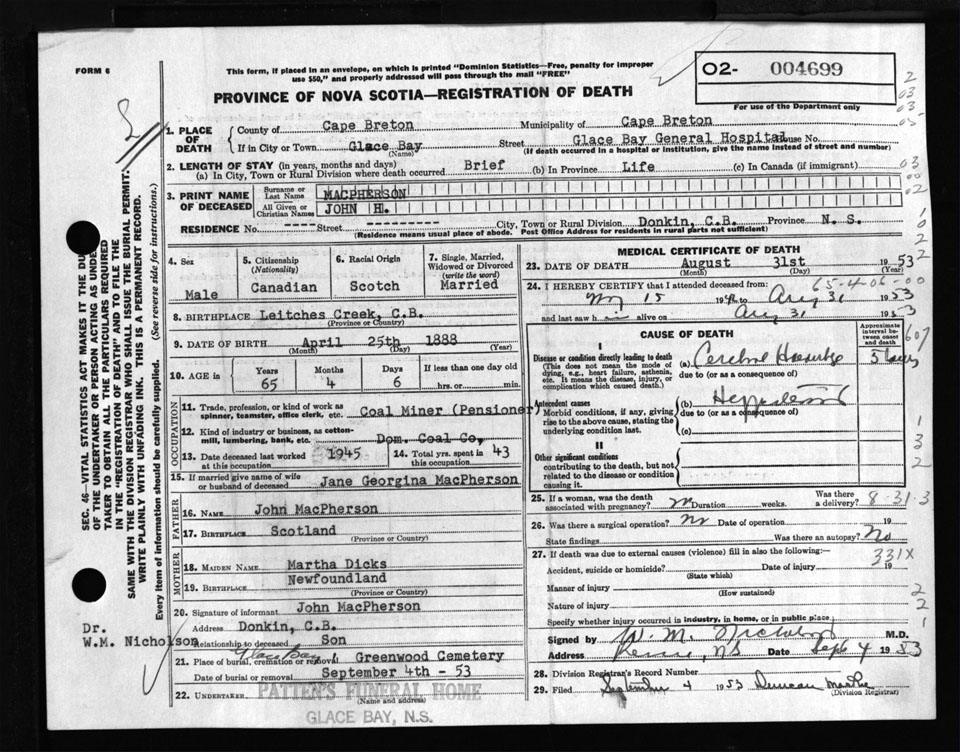 FORM 6
This form, if placed in an envelope, on which is printed "Dominion Statistics—Free, penalty for improper
use $50," and properly addressed will pass through the mail "FREE"
O2- 004699
For use of the Department only
PROVINCE OF NOVA SCOTIA—REGISTRATION OF DEATH
2
03
03
05
03
00
02
1. PLACE OF DEATH
County of Cape Breton Municipality of Cape Breton
If in City or Town Glace Bay Street Glace Bay General Hospital House No.
(Name) (If death occurred in a hospital or institution, give the name instead of street and number)
2. LENGTH OF STAY (in years, months and days)
(a) In City, Town or Rural Division where death occurred Brief (b) In Province Life (c) In Canada (if immigrant)
3. PRINT NAME OF DECEASED
Surname or Last Name MACPHERSON
All Given or Christian Names JOHN H.
RESIDENCE No. ------ Street ------ City, Town or Rural Division Donkin, C.B. Province N. S.
(Residence means usual place of abode. Post Office Address for residents in rural parts not sufficient)
4. Sex Male
5. Citizenship (Nationality) Canadian
6. Racial Origin Scotch
7. Single, Married, Widowed or Divorced (write the word) Married
8. BIRTHPLACE Leitches Creek, C.B.
(Province or Country)
9. DATE OF BIRTH April 25th 1888
(Month) (Day) (Year)
10. AGE in Years Months Days If less than one day old
65 4 6 hrs. or min.
OCCUPATION
11. Trade, profession, or kind of work as spinner, teamster, office clerk, etc. Coal Miner (Pensioner)
12. Kind of industry or business, as cotton-mill, lumbering, bank, etc. Dom. Coal Co,
13. Date deceased last worked at this occupation 1945 14. Total yrs. spent in this occupation 43
15. If married give name of wife or husband of deceased Jane Georgina MacPherson
FATHER
16. NAME John MacPherson
17. BIRTHPLACE Scotland
(Province or Country)
MOTHER
18. MAIDEN NAME Martha Dicks
19. BIRTHPLACE Newfoundland
(Province or Country)
20. Signature of informant John MacPherson
Address Donkin, C.B.
Relationship to deceased Son
21. Place of burial, cremation or removal Glace Bay Greenwood Cemetery
Date of burial or removal September 4th - 53
22. UNDERTAKER PATTEN'S FUNERAL HOME
(Name and address)
GLACE BAY, N.S.
MEDICAL CERTIFICATE OF DEATH
23. DATE OF DEATH August 31st 1953
(Month) (Day) (Year)
65-4-06-00
24. I HEREBY CERTIFY that I attended deceased from:
15 19 to Aug 31 1953
and last saw h alive on Aug 31 1953
CAUSE OF DEATH
Approximate interval between onset and death
I
Disease or condition directly leading to death (a) Cerebral
(This does not mean the mode of dying, e.g., heart failure, asthenia, etc. It means the disease, injury, or complication which caused death.)
due to (or as a consequence of)
Antecedent causes (b)
Morbid conditions, if any, giving rise to the above cause, stating the underlying condition last.
due to (or as a consequence of)
(c)
II
Other significant conditions
contributing to the death, but not related to the disease or condition causing it.
25. If a woman, was the death associated with pregnancy? Duration weeks. Was there a delivery?
8-31-3
26. Was there a surgical operation? No Date of operation 19
State findings Was there an autopsy? No
331X
27. If death was due to external causes (violence) fill in also the following:—
Accident, suicide or homicide? Date of injury 19
(State which)
Manner of injury
(How sustained)
Nature of injury
Specify whether injury occurred in industry, in home, or in public place
Signed by W. M. Nicholson M.D.
Address N.S. Date Sept 4 1953
28. Division Registrar's Record Number
29. Filed September 4 1953 Duncan
(Division Registrar)
SEC. 46—VITAL STATISTICS ACT MAKES IT THE DU
OF THE UNDERTAKER OR PERSON ACTING AS UNDE
TAKER TO OBTAIN ALL THE PARTICULARS REQUIRED
IN THE "REGISTRATION OF DEATH" AND TO FILE THE
SAME WITH THE DIVISION REGISTRAR WHO SHALL ISSUE THE BURIAL PERMIT.
WRITE PLAINLY WITH UNFADING INK. THIS IS A PERMANENT RECORD.
Every item of information should be carefully supplied. (See reverse side for instructions.)
Dr.
W.M. Nicholson